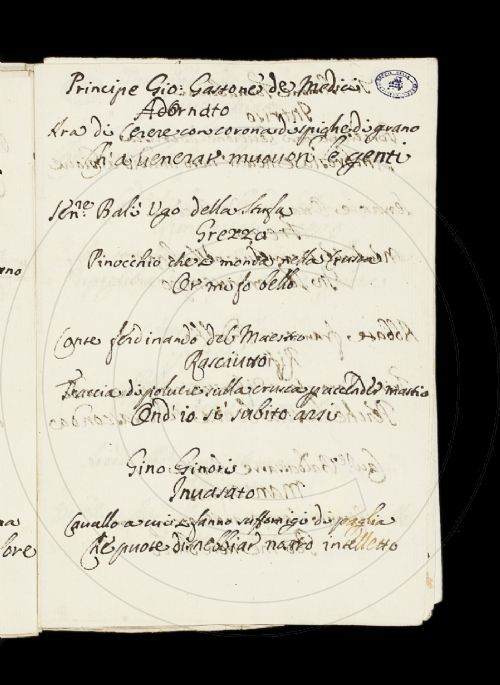 Principe Gio: Gastone de Medici
Adornato
Ara di Cerere con corona di spighe di grano
Ch' a venerar muovon le genti
Sen:re Balì Ugo della Stufa
Grezzo
Pinocchio che si monda nella Crusca
Or mi fo bello
Conte ferdinando del Maestro
Rasciutto
Traccia di polvere sulla crusca p accender mastio
Ond' io sì subito arsi
Gino: Ginori
Invasato
Cavallo a cui si fanno suffomigi di paglia
Che puote disnebbiar nostro intelletto
ano
na
fore